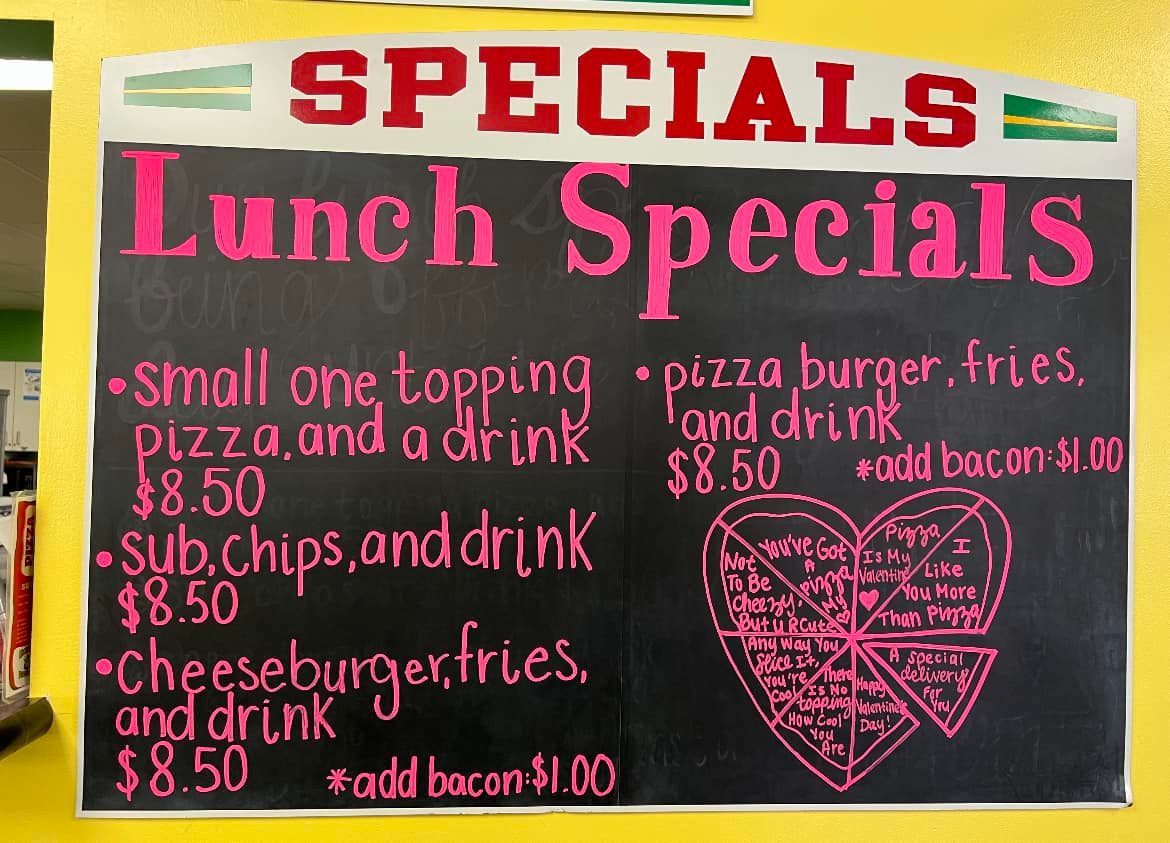 SPECIALS
Lunch Specials
• small one topping
pizza, and a drink
$8.50
• sub, chips, and drink
$8.50
• cheeseburger, fries,
and drink
$8.50
*add bacon: $1.00
• pizza burger, fries,
and drink
$8.50
*add bacon: $1.00
Not
To Be
Cheezy,
But U R Cute
You've Got
A
Pizza
My
Pizza
Is My
Valentine
I
Like
You More
Than Pizza
Any Way You
Slice It,
You're
Cool
There
Is No
topping
How Cool
You
Are
Happy
Valentine's
Day!
A special
delivery
For
You